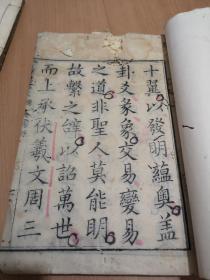 十翼以發明蘊奧蓋
卦爻彖象交易變易
之道非聖人莫能明
故繫之辭以詔萬世
而上承伏羲文周三
一